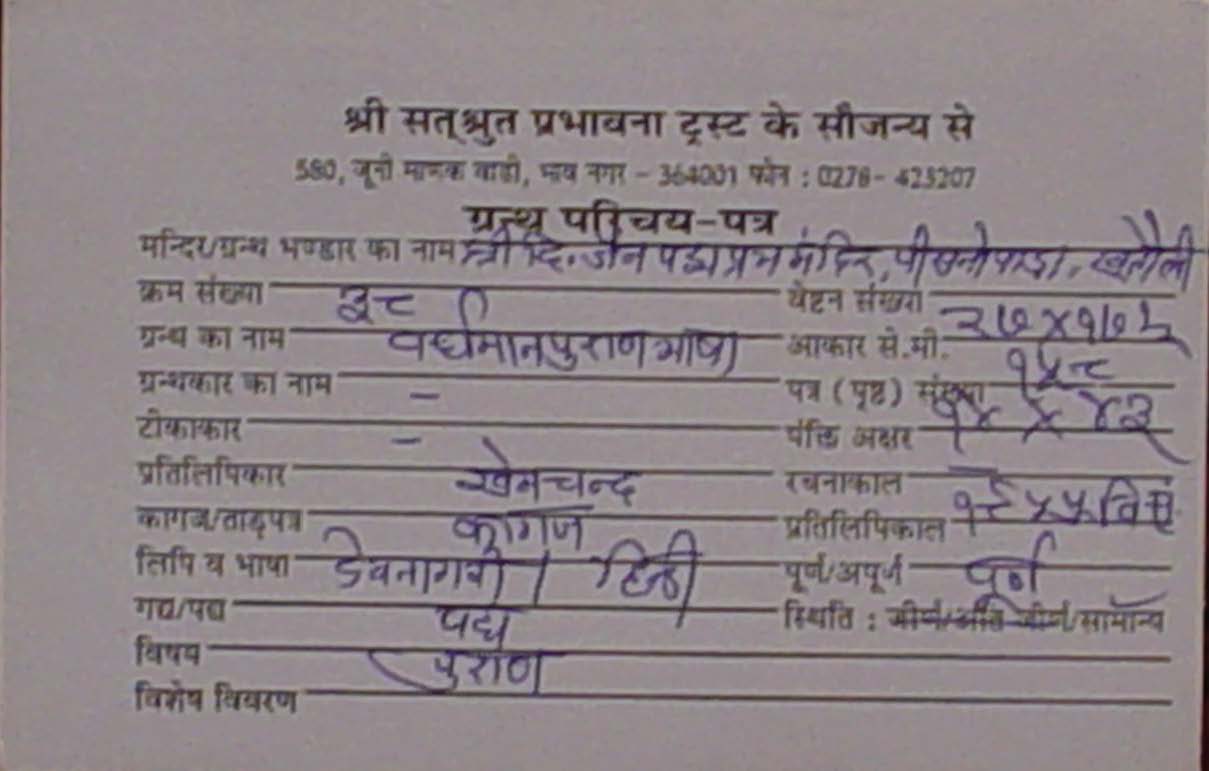 श्री सत्श्रुत प्रभावना ट्रस्ट के सौजन्य से
580, जूनी माणक वाडी, भाव नगर - 364001 फोन : 0278- 423207
ग्रन्थ परिचय-पत्र
मन्दिर/ग्रन्थ भण्डार का नाम श्री दि. जैन पद्मप्रभ मंदिर, खतौली
क्रम संख्या ३८ वेष्टन संख्या
ग्रन्थ का नाम वर्धमानपुराण भाषा आकार से.मी. २७ X १७५
ग्रन्थकार का नाम - पत्र (पृष्ठ) संख्या १५८
टीकाकार - पंक्ति अक्षर १४ X ४३
प्रतिलिपिकार खेमचन्द रचनाकाल -
कागज/ताड़पत्र कागज प्रतिलिपिकाल १९५५ वि सं
लिपि व भाषा देवनागरी / हिन्दी पूर्ण/अपूर्ण पूर्ण
गद्य/पद्य पद्य स्थिति : जीर्ण/अति जीर्ण/सामान्य
विषय पुराण
विशेष विवरण